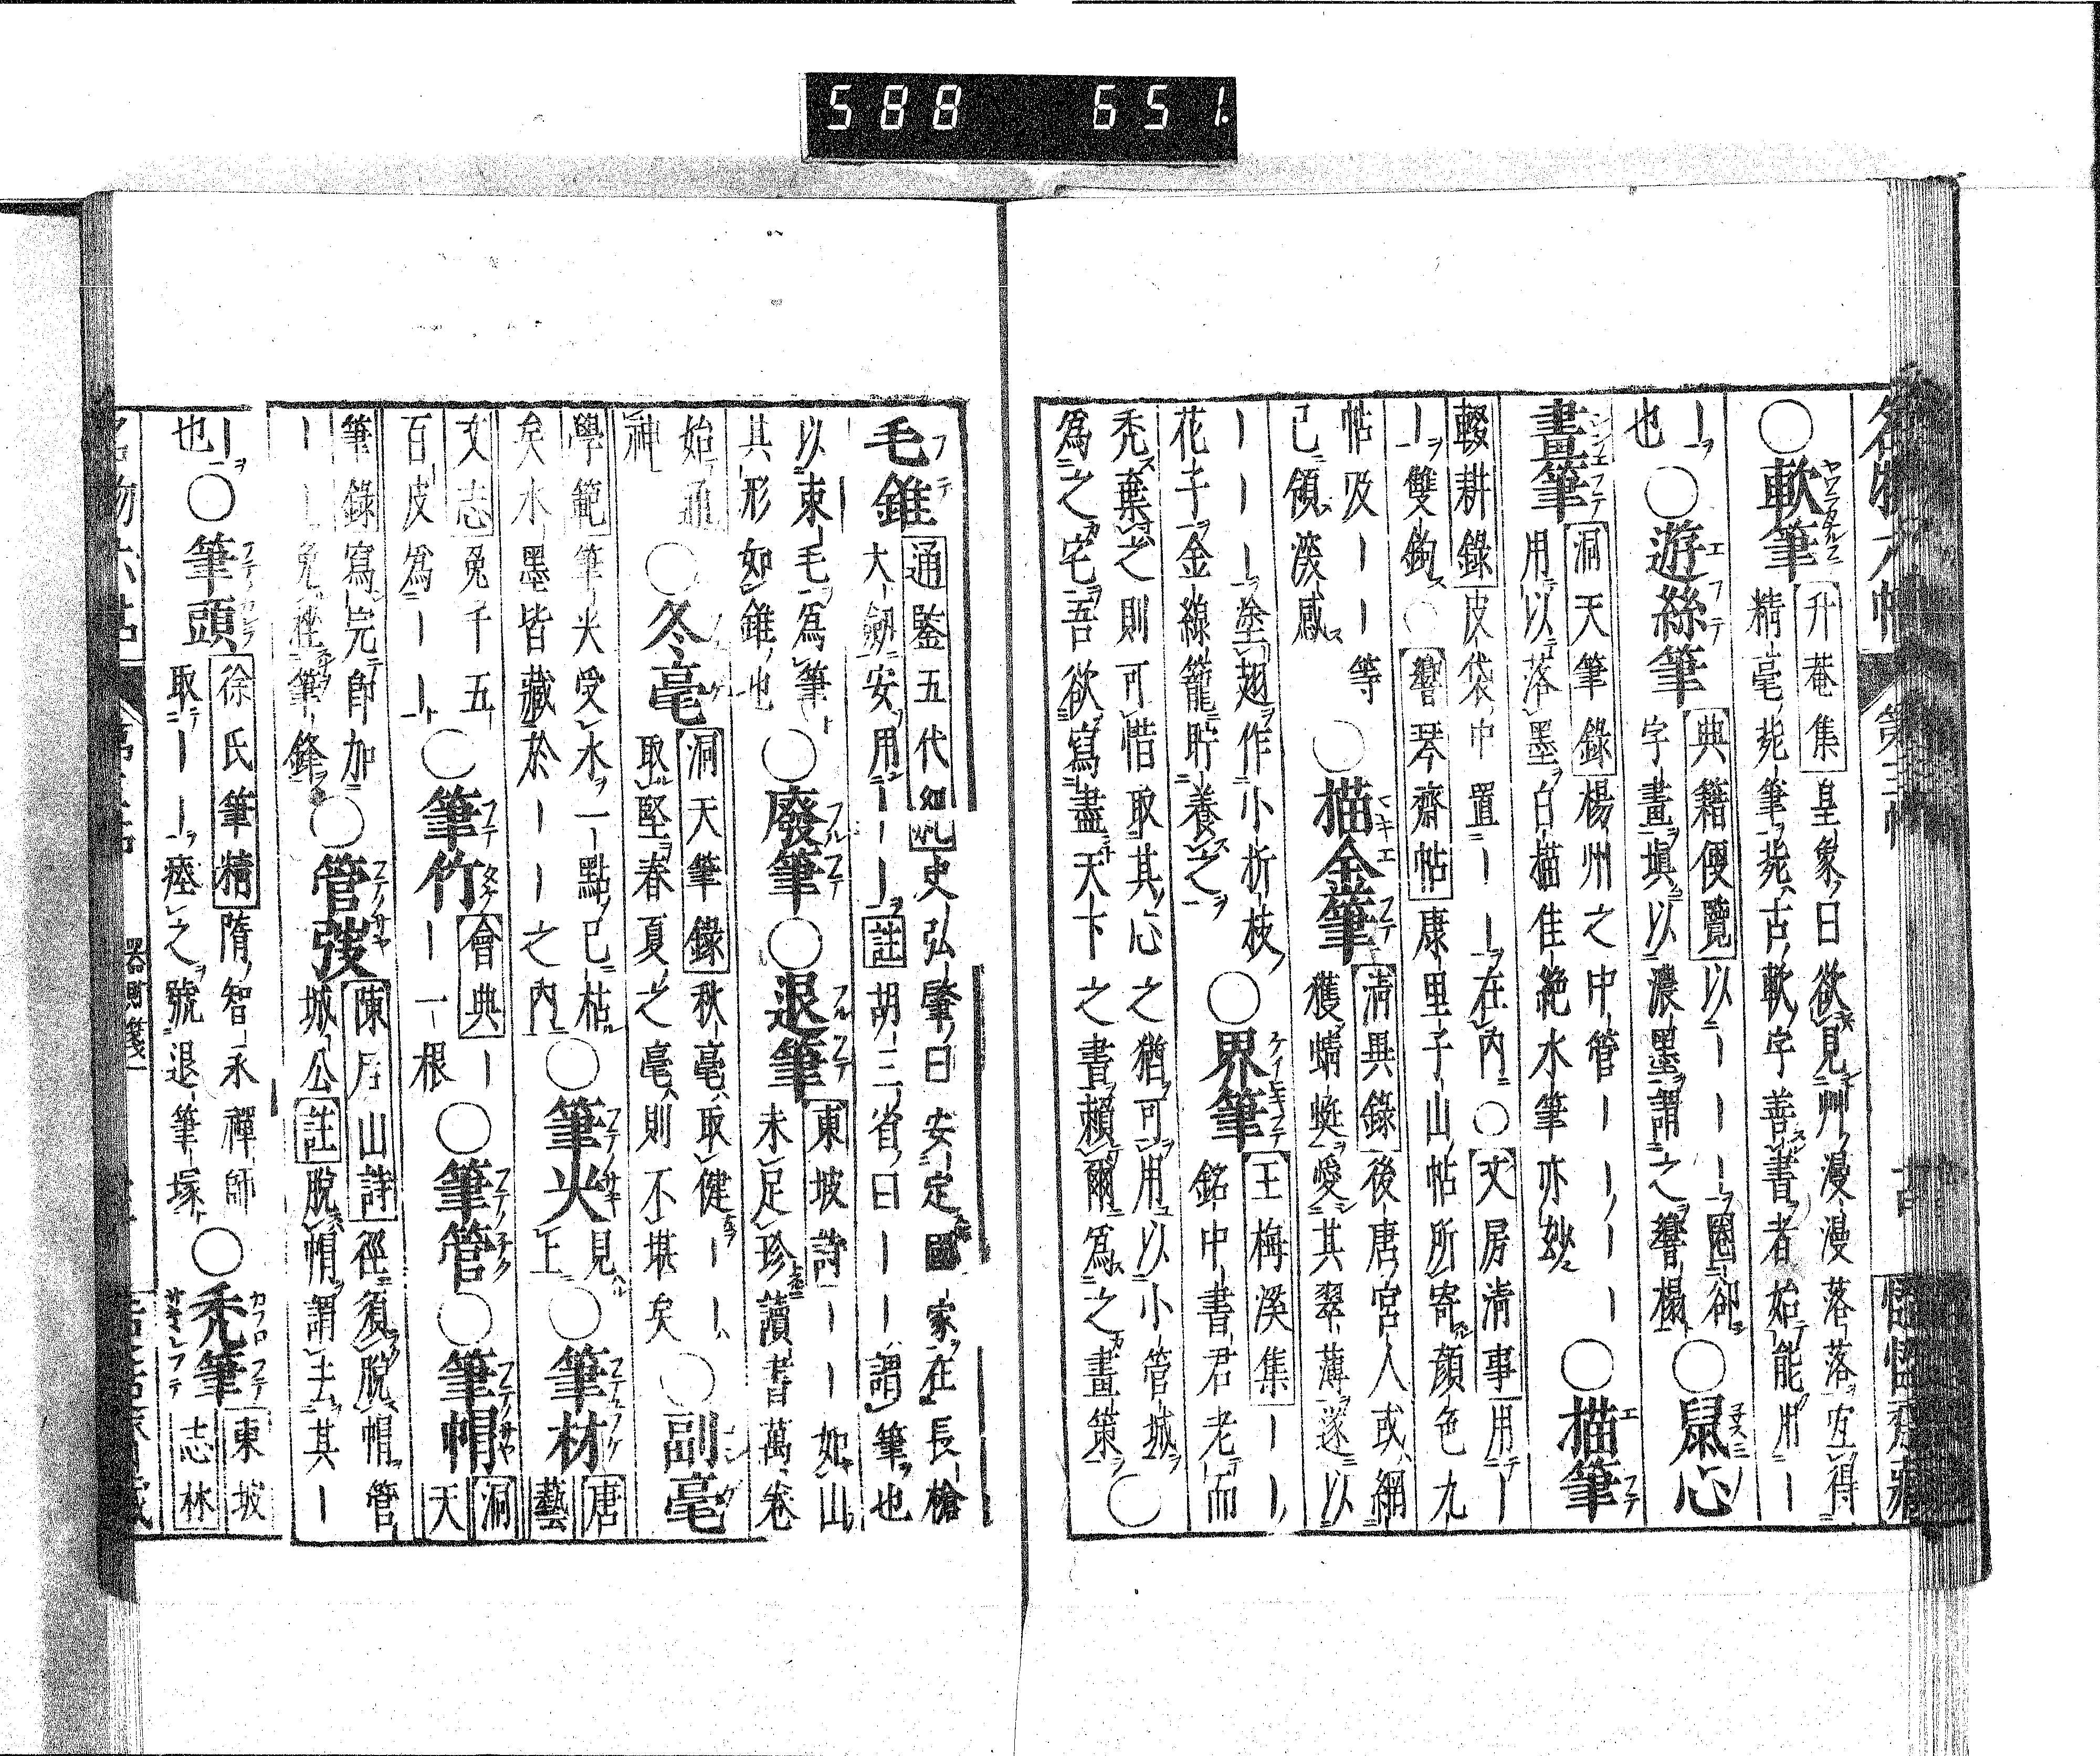 588 651
名物六帖 第三帖
○軟筆 升菴集 皇象曰欲見艸漫漫落落宜得
精毫㲨筆㲨古軟字善書者始能用|
|也○遊絲筆 典籍便覽 以|||圈却
字畫塡以濃墨謂之響榻○鼠心
畫筆 洞天筆錄 楊州之中管||||○描筆
用以落墨白描佳絕水筆亦妙
輟耕錄 皮袋中置||在內○文房清事 用|
|雙鉤○響琴齋帖 康里子山帖所寄顏色九
帖及||等○描金筆 清異錄 後唐宮人或網
已領淡感 獲蜻蜓愛其翠薄遂以
|||塗翅作小折枝○界筆 王梅溪集 ||
花子金線籠貯養之 銘中書君老而
禿棄之則可惜取其心之猶可用以小管城
爲之宅吾欲寫盡天下之書賴爾爲之畫策○
毛錐 通鑒五代 史弘肇曰安定國家在長槍
大劔安用||| 註 胡三省曰||謂筆也
以束毛爲筆○廢筆○退筆 東坡詩 ||如山
其形如錐也 未足珍讀書萬卷
始通○冬毫 洞天筆錄 秋毫取健||○副毫
神 取堅春夏之毫則不堪矣
學範 筆火受水一點已枯○筆尖 見上○筆材 唐
矣水墨皆藏於|||之內 藝
文志 兎千五○筆竹 會典 |○筆管○筆帽 洞
百皮爲|| |一根 天
筆錄 寫完卽加○管弢 陳后山詩 徑須脫帽管
|| 筆鋒 城公 註 脫帽謂去其|
|○筆頭 徐氏筆精 隋智永禪師○禿筆 東坡
也 取||瘞之號退筆塚 志林
器財箋一